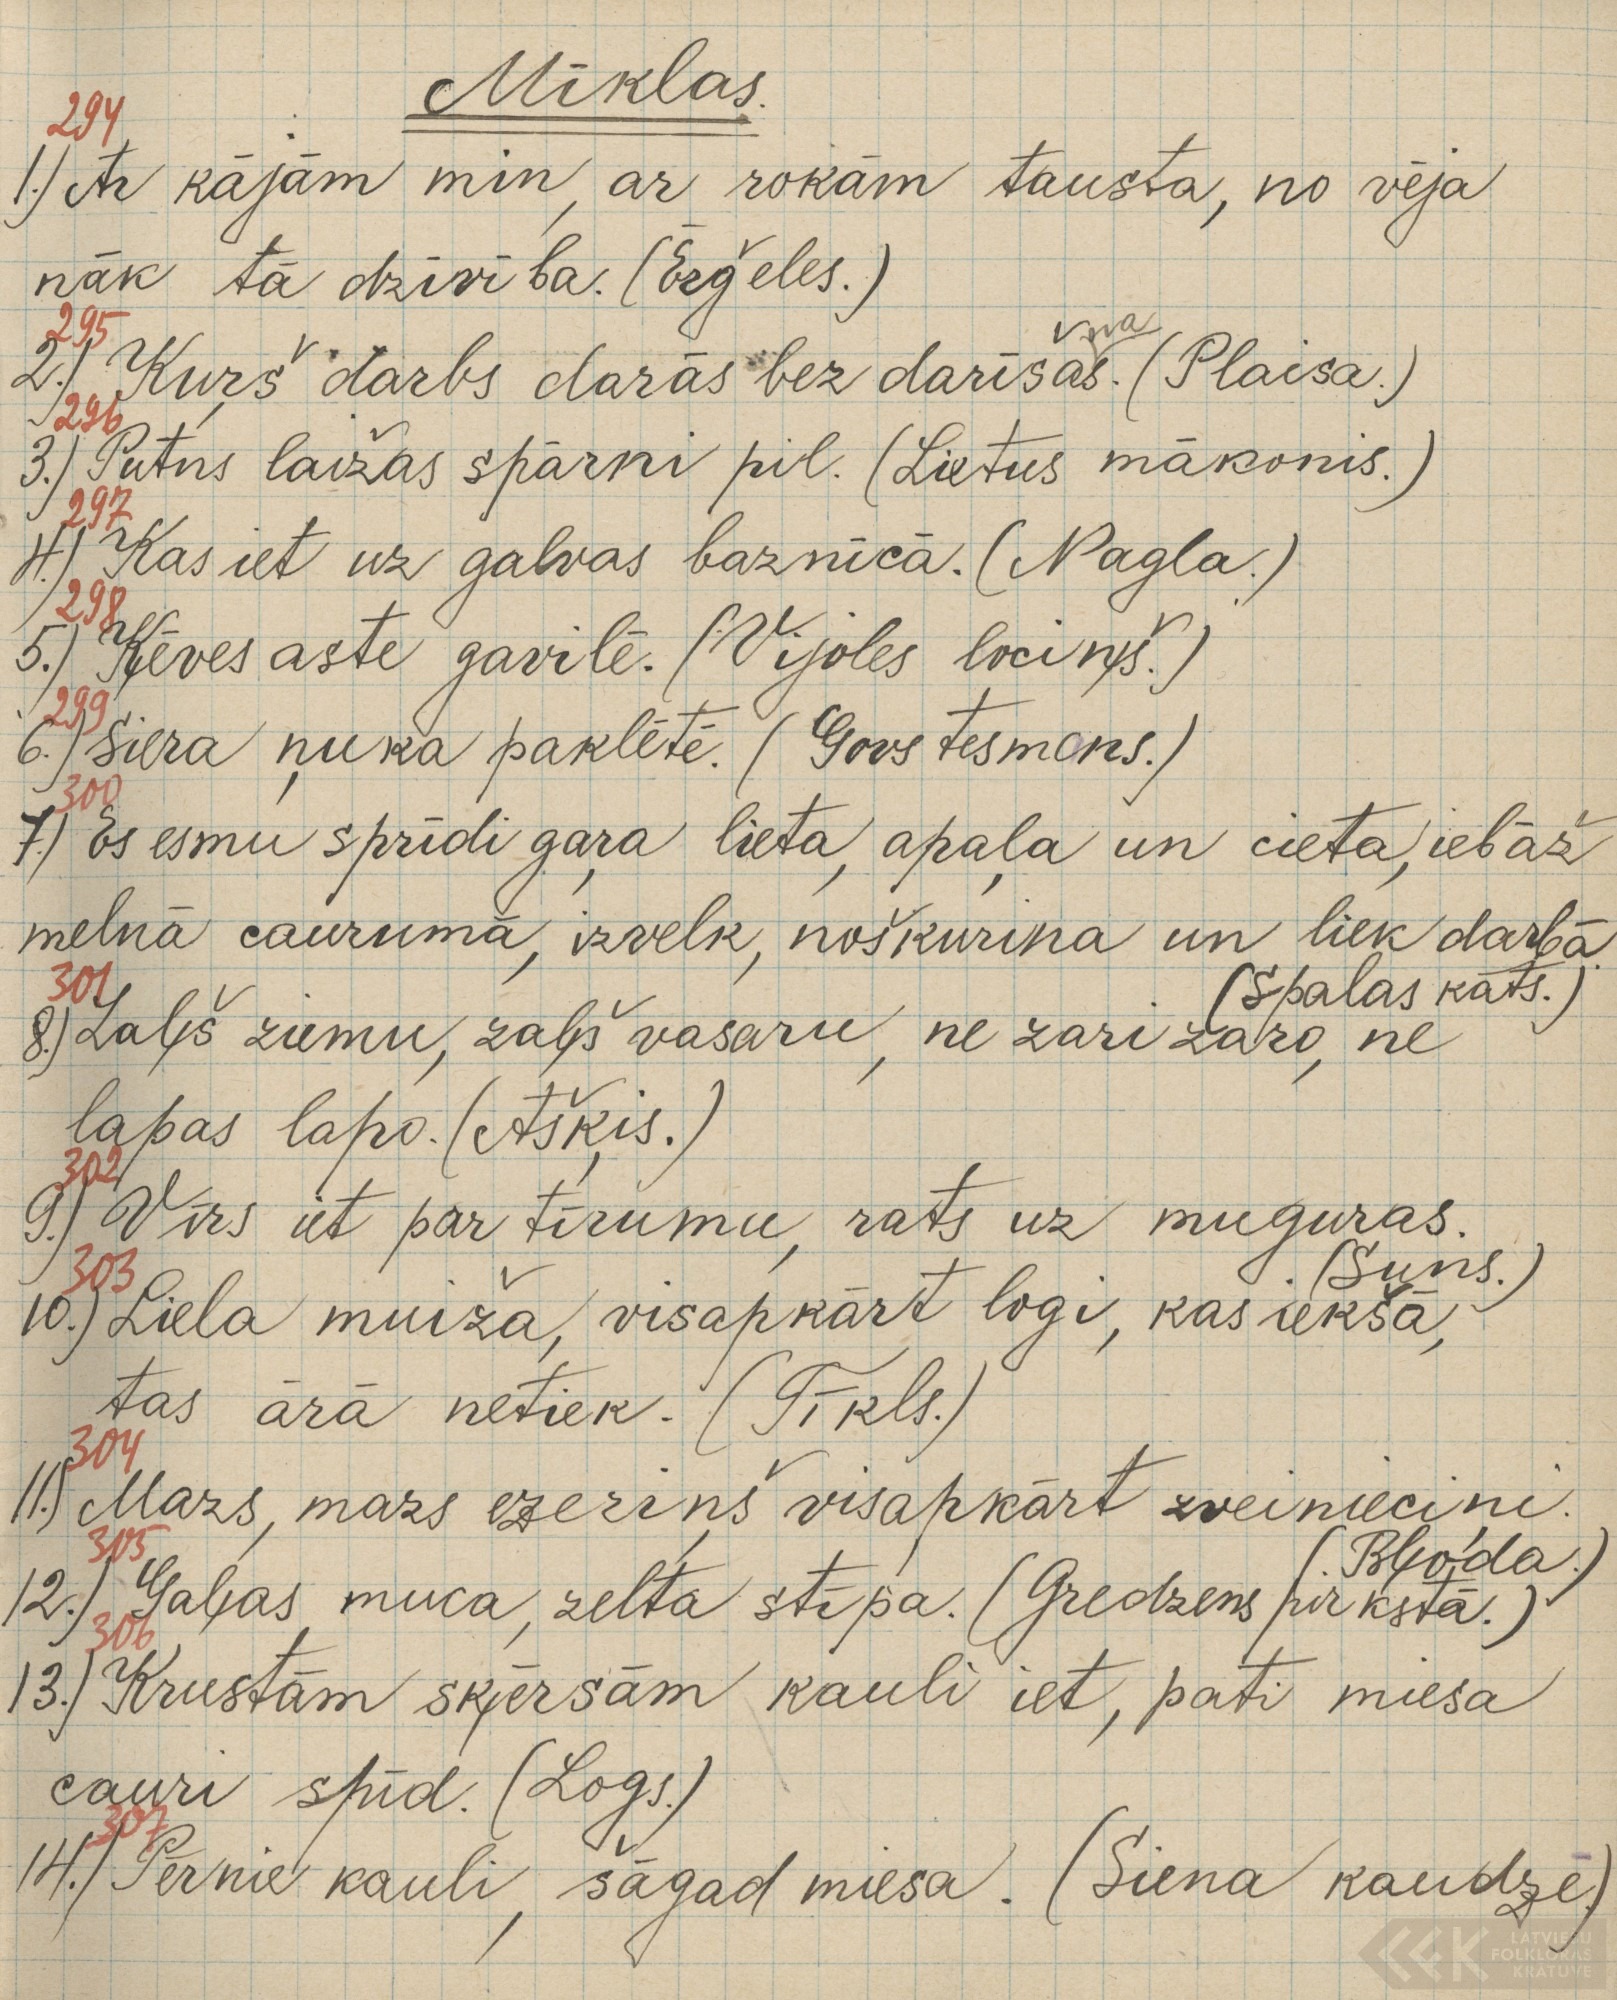 Mīklas.
294
1.) Ar kājām min, ar rokām tausta, no vēja
nāk tā dzīvība. (Ērģeles.)
295
2.) Kuŗš darbs darās bez darīšas. (Plaisa.)
296
3.) Putns laižas spārni pil. (Lietus mākonis.)
297
4.) Kas iet uz galvas baznīcā. (Nagla.)
298
5.) Ķēves aste gavilē. (Vijoles lociņš.)
299
6.) Siera ņuka paklētē. (Govs tesmens.)
300
7.) Es esmu sprīdi gaŗa lieta, apaļa un cieta, iebāž
melnā caurumā, izvelk, noškurina un liek darbā.
(Spalas kāts.)
301
8.) Zaļš ziemu, zaļš vasaru, ne zari zaro, ne
lapas lapo. (Ašķis.)
302
9.) Vīrs iet pār tīrumu, rats uz muguras.
(Suns.)
303
10.) Liela muiža, visapkārt logi, kas iekšā,
tas ārā netiek. (Tīkls.)
304
11.) Mazs, mazs ezeriņš visapkārt zveiniecini.
(Bļoda.)
305
12.) Gaļas muca, zelta stīpa. (Gredzens pirkstā.)
306
13.) Krustām šķērsām kauli iet, pati miesa
cauri spīd. (Logs.)
307
14.) Pērnie kauli, šāgad miesa. (Siena kaudze.)
LATVIEŠU
FOLKLORAS
KRĀTUVE